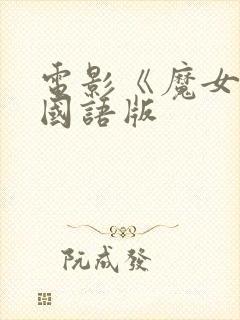 電影《魔女
國語版
阮成發